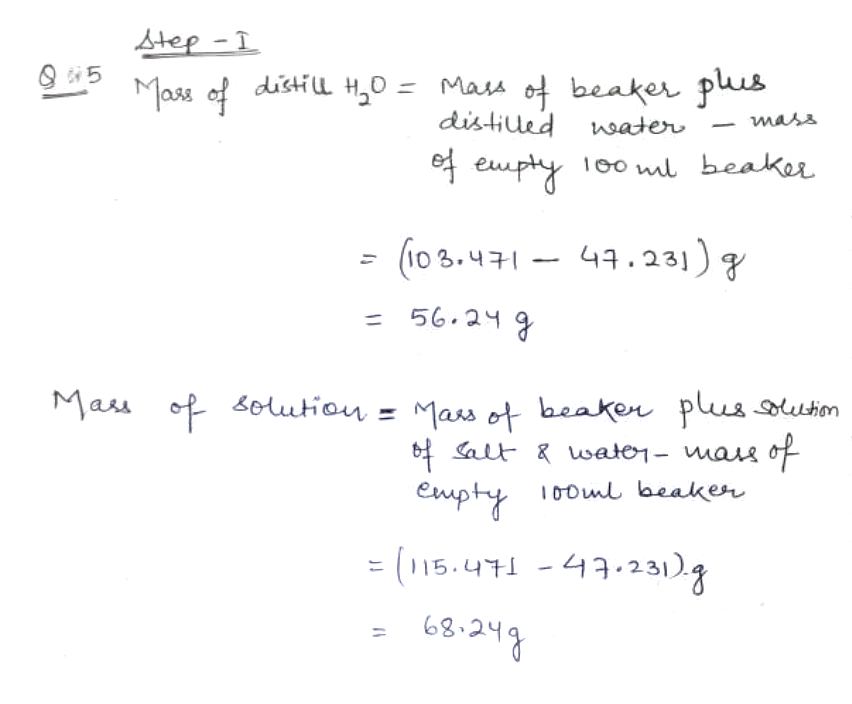 Step - I
Q 5 Mass of distill H₂O = Mass of beaker plus
distilled water - mass
of empty 100 ml beaker
= (103.471 - 47.231) g
= 56.24 g
Mass of solution = Mass of beaker plus solution
of salt & water - mass of
empty 100ml beaker
= (115.471 - 47.231).g
= 68.24g